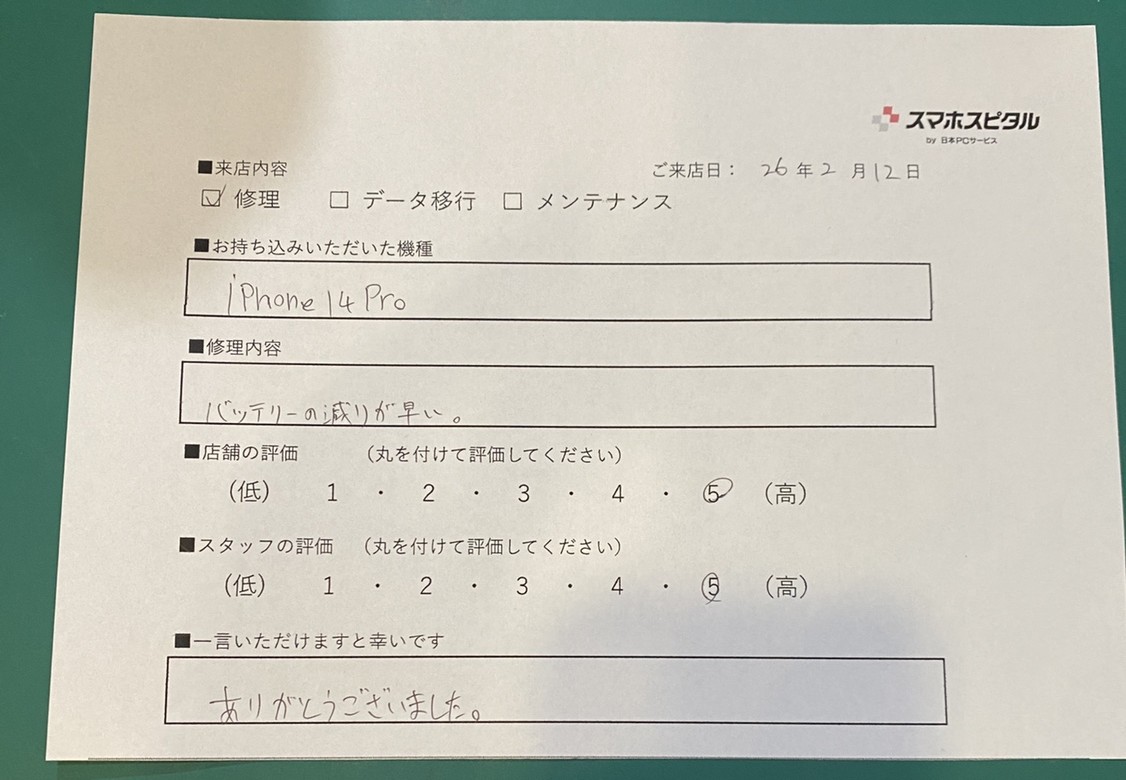 スマホスピタル
by 日本PCサービス
■来店内容 ご来店日： 26年2月12日
☑ 修理 □ データ移行 □ メンテナンス
■お持ち込みいただいた機種
iPhone 14 Pro
■修理内容
バッテリーの減りが早い。
■店舗の評価 （丸を付けて評価してください）
（低） 1 ・ 2 ・ 3 ・ 4 ・ 5 （高）
■スタッフの評価 （丸を付けて評価してください）
（低） 1 ・ 2 ・ 3 ・ 4 ・ 5 （高）
■一言いただけますと幸いです
ありがとうございました。